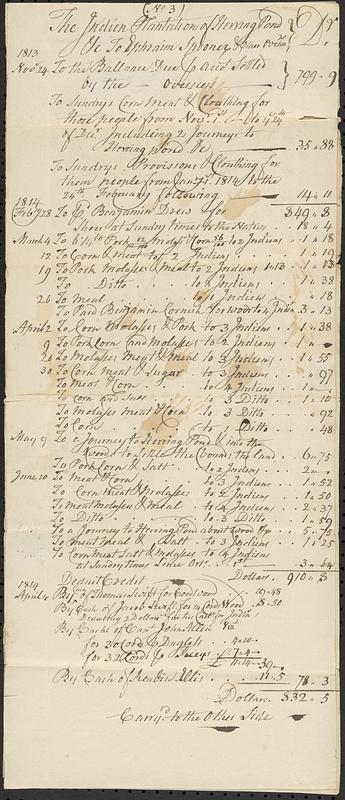 (No 3)
The Indian Plantation of Herring Pond
To Ephraim Spooner & other Overs Dr
1813
Novr 24 To the Ballance Due p Acct Settled
by the Overseers 799 - 9
To Sundrys Corn Meat & Cloathing for
those people from Novr to 24th
of Decr Including 2 Journeys to
Herring Pond &c 35 " 88
To Sundrys Provisions & Cloathing for
them people from Jany 1 1814 to the
24th February following 14 " 11
1814 849 " 8
Feby 28 To Benjamin Drew for
Shoes at Sundry times to the Natives 18 " 4
March 4 To Pork Molass Corn to 2 Indians 1 " 18
12 To Corn & Meat to 2 Indians 1 " 19
19 To Pork Molasses & Meal to 2 Indians 1 "
To Ditto to 2 Indians 1 " 38
26 To Meal to 1 Indian " 18
To Paid Benjamin Cornish for Wood to Indn 3 " 13
April 2 To Corn Molasses & Pork to 3 Indians 1 " 38
9 To Pork Corn and Molasses to 2 Indians 1 "
20 To Molasses Meat & Meal to 3 Indians 1 " 55
30 To Corn Meat & Sugar to 3 Indians " 97
To Meat & Corn to 4 Indians 1 "
To Corn and to 3 Ditto 1 " 10
To Molasses Meat & Corn to 3 Ditto " 92
To Corn to 1 Ditto 48
May 9 To a Journey to Herring Pond & into the
Woods to Settle the bounds the land 6 " 75
To Pork Corn & Salt to 2 Indians 2 "
June 10 To Meat & Corn to 3 Indians 1 " 52
To Corn Meat & Molasses to 2 Indians 1 " 50
To Meat Molasses & Meal to 4 Indians 2 " 37
To Ditto to 3 Ditto 1 " 59
To a Journey to Herring Pond about 5 " 75
To Meat Meal & Salt to 3 Indians 1 " 25
To Corn Meat Salt & Molasses to 4 Indians
at Sundry times Since 3 " 64
1814 Deduct Credit Dollars 910 " 8
April By Cash of Thomas Swift for Cord Wood 19 " 48
By Cash of Jacob Swift for Cord Wood 8 " 50
Deducting 2 Dollars for Indian
By Cash of Capt John Allen
for 30 Cord 4 " 10
for 32 Cord £ 7 " 4
£ 11 " 14 39
By Cash of Reuben Ellis 11 " 5 78 " 3
Dollars 832 " 5
Carryd to the Other Side